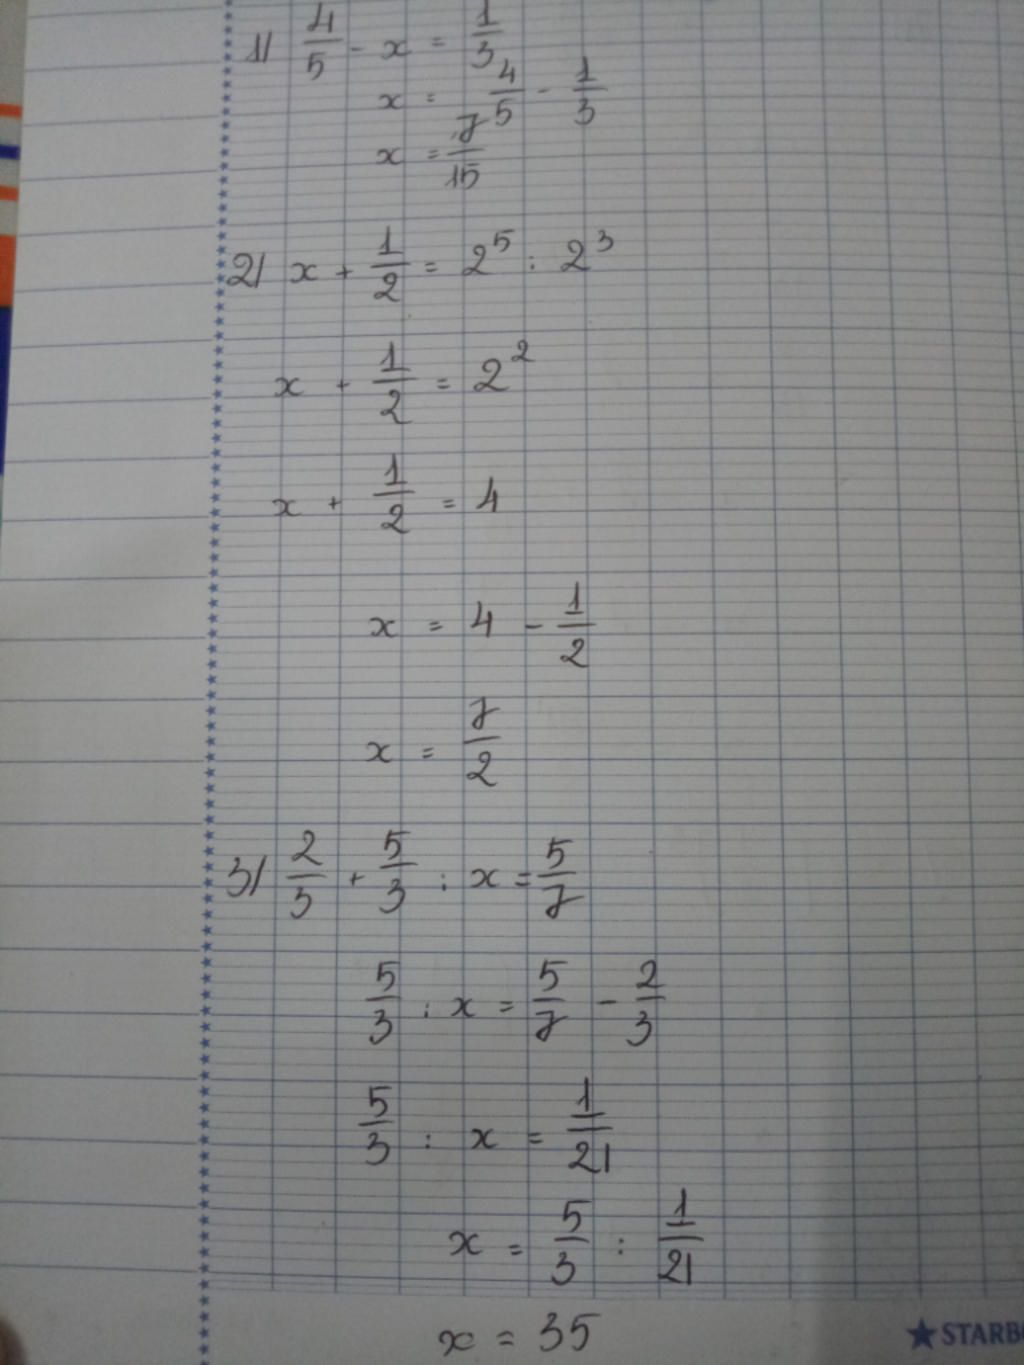 1) 4/5 - x = 1/3
x = 4/5 - 1/3
x = 7/15
2) x + 1/2 = 2^5 : 2^3
x + 1/2 = 2^2
x + 1/2 = 4
x = 4 - 1/2
x = 7/2
3) 2/3 + 5/3 : x = 5/7
5/3 : x = 5/7 - 2/3
5/3 : x = 1/21
x = 5/3 : 1/21
x = 35
★ STARB